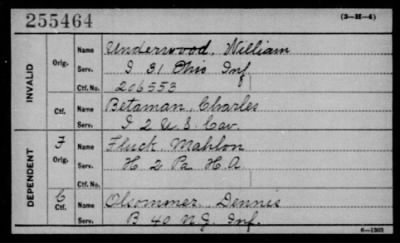 255464 (3-H-4)
INVALID
Orig.
Name Underwood, William
Serv. I 31 Ohio Inf
Ctf. No. 206553
Ctf.
Name Betaman, Charles
Serv. I 2 U.S. Cav.
DEPENDENT
F
Orig.
Name Fluck, Mahlon
Serv. H 2 Pa H.A
Ctf. No.
C
Ctf.
Name Olsommer, Dennis
Serv. B 40 N.J. Inf.